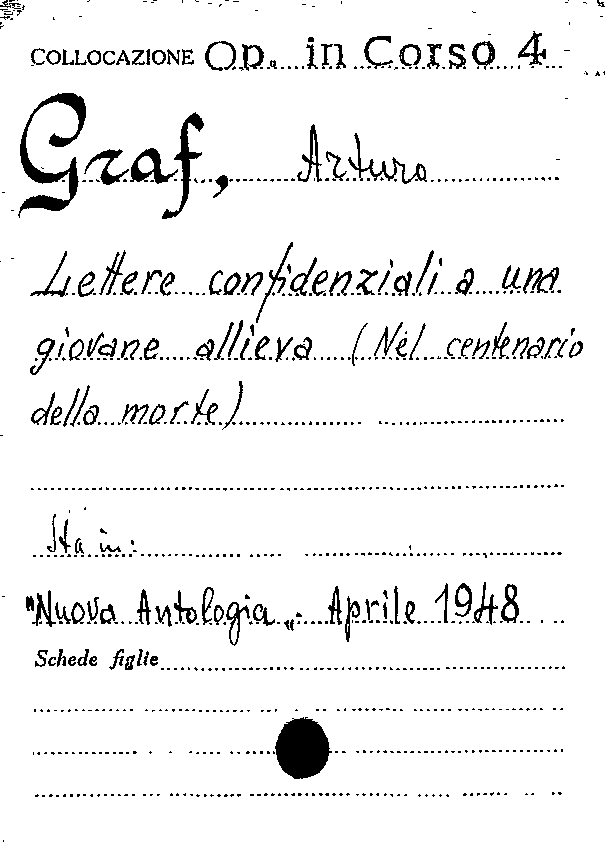 COLLOCAZIONE Op. in Corso 4
Graf, Arturo
Lettere confidenziali a una
giovane allieva (Nel centenario
della morte)
Sta in:
"Nuova Antologia„. Aprile 1948
Schede figlie